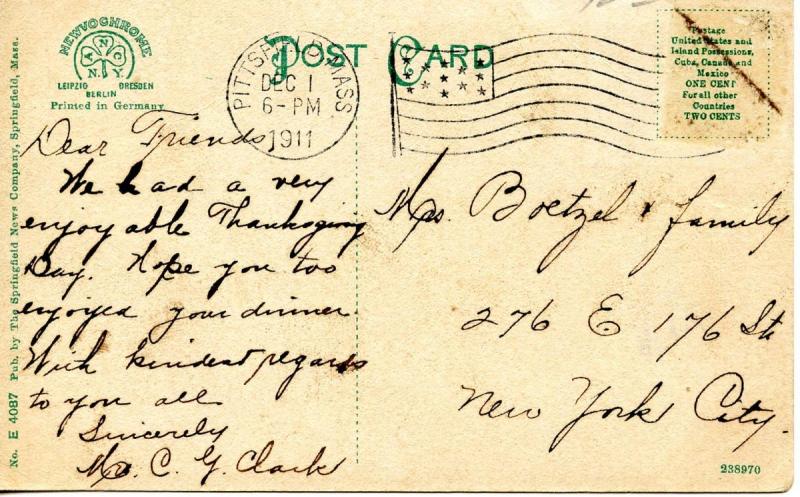 NEWVOCHROME
A N C
N.Y.
LEIPZIG DRESDEN
BERLIN
Printed in Germany
POST CARD
PITTSFIELD, MASS.
DEC 1
6-PM
1911
Postage
United States and
Island Possessions,
Cuba, Canada and
Mexico
ONE CENT
For all other
Countries
TWO CENTS
No. E 4087 Pub. by The Springfield News Company, Springfield, Mass.
Dear Friends
We had a very
enjoyable Thanksgiving
Day. Hope you too
enjoyed your dinner
With kindest regards
to you all
Sincerely
C. G. Clark
Mrs. Boetzel & family
276 E 176 St.
New York City.
238970